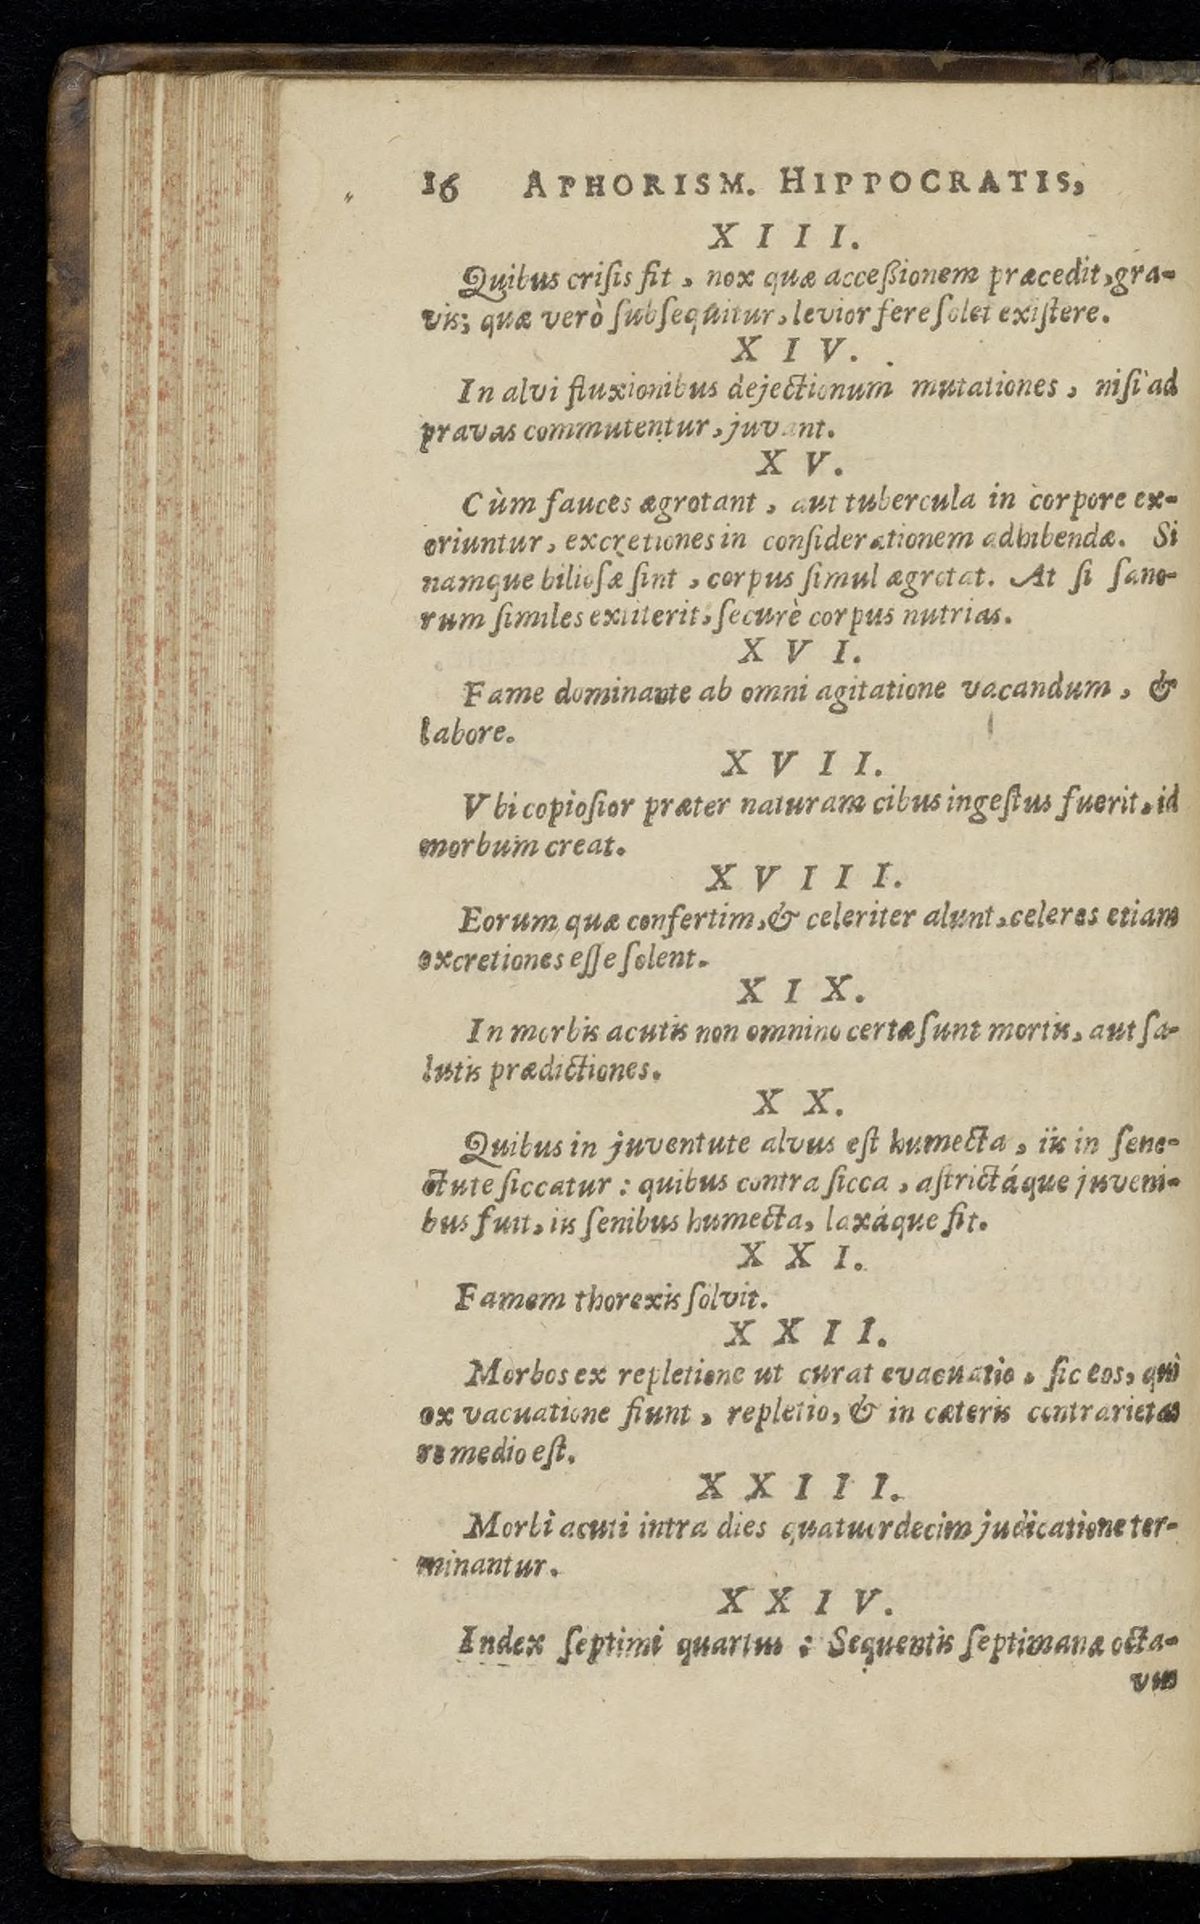 16 APHORISM. HIPPOCRATIS,
XIII.
Quibus crisis fit, nox quæ accessionem præcedit, gra-
vis; quæ verò subsequitur, levior fere solet existere.
XIV.
In alvi fluxionibus dejectionum mutationes, nisi ad
pravas commutentur, juvant.
XV.
Cùm fauces ægrotant, aut tubercula in corpore ex-
oriuntur, excretiones in considerationem adhibendæ. Si
namque biliosæ sint, corpus simul ægrotat. At si sano-
rum similes extiterit, securè corpus nutrias.
XVI.
Fame dominante ab omni agitatione vacandum, &
labore.
XVII.
Vbi copiosior præter naturam cibus ingestus fuerit, id
morbum creat.
XVIII.
Eorum quæ confertim, & celeriter alunt, celeres etiam
excretiones esse solent.
XIX.
In morbis acutis non omnino certæ sunt mortis, aut sa-
lutis prædictiones.
XX.
Quibus in juventute alvus est humecta, iis in sene-
ctute siccatur: quibus contra sicca, astrictáque juveni-
bus fuit, iis senibus humecta, laxáque fit.
XXI.
Famem thorexis solvit.
XXII.
Morbos ex repletione ut curat evacuatio, sic eos, qui
ex vacuatione fiunt, repletio, & in cæteris contrarietas
remedio est.
XXIII.
Morbi acuti intra dies quatuordecim judicatione ter-
minantur.
XXIV.
Index septimi quartus: Sequentis septimanæ octa-
vus